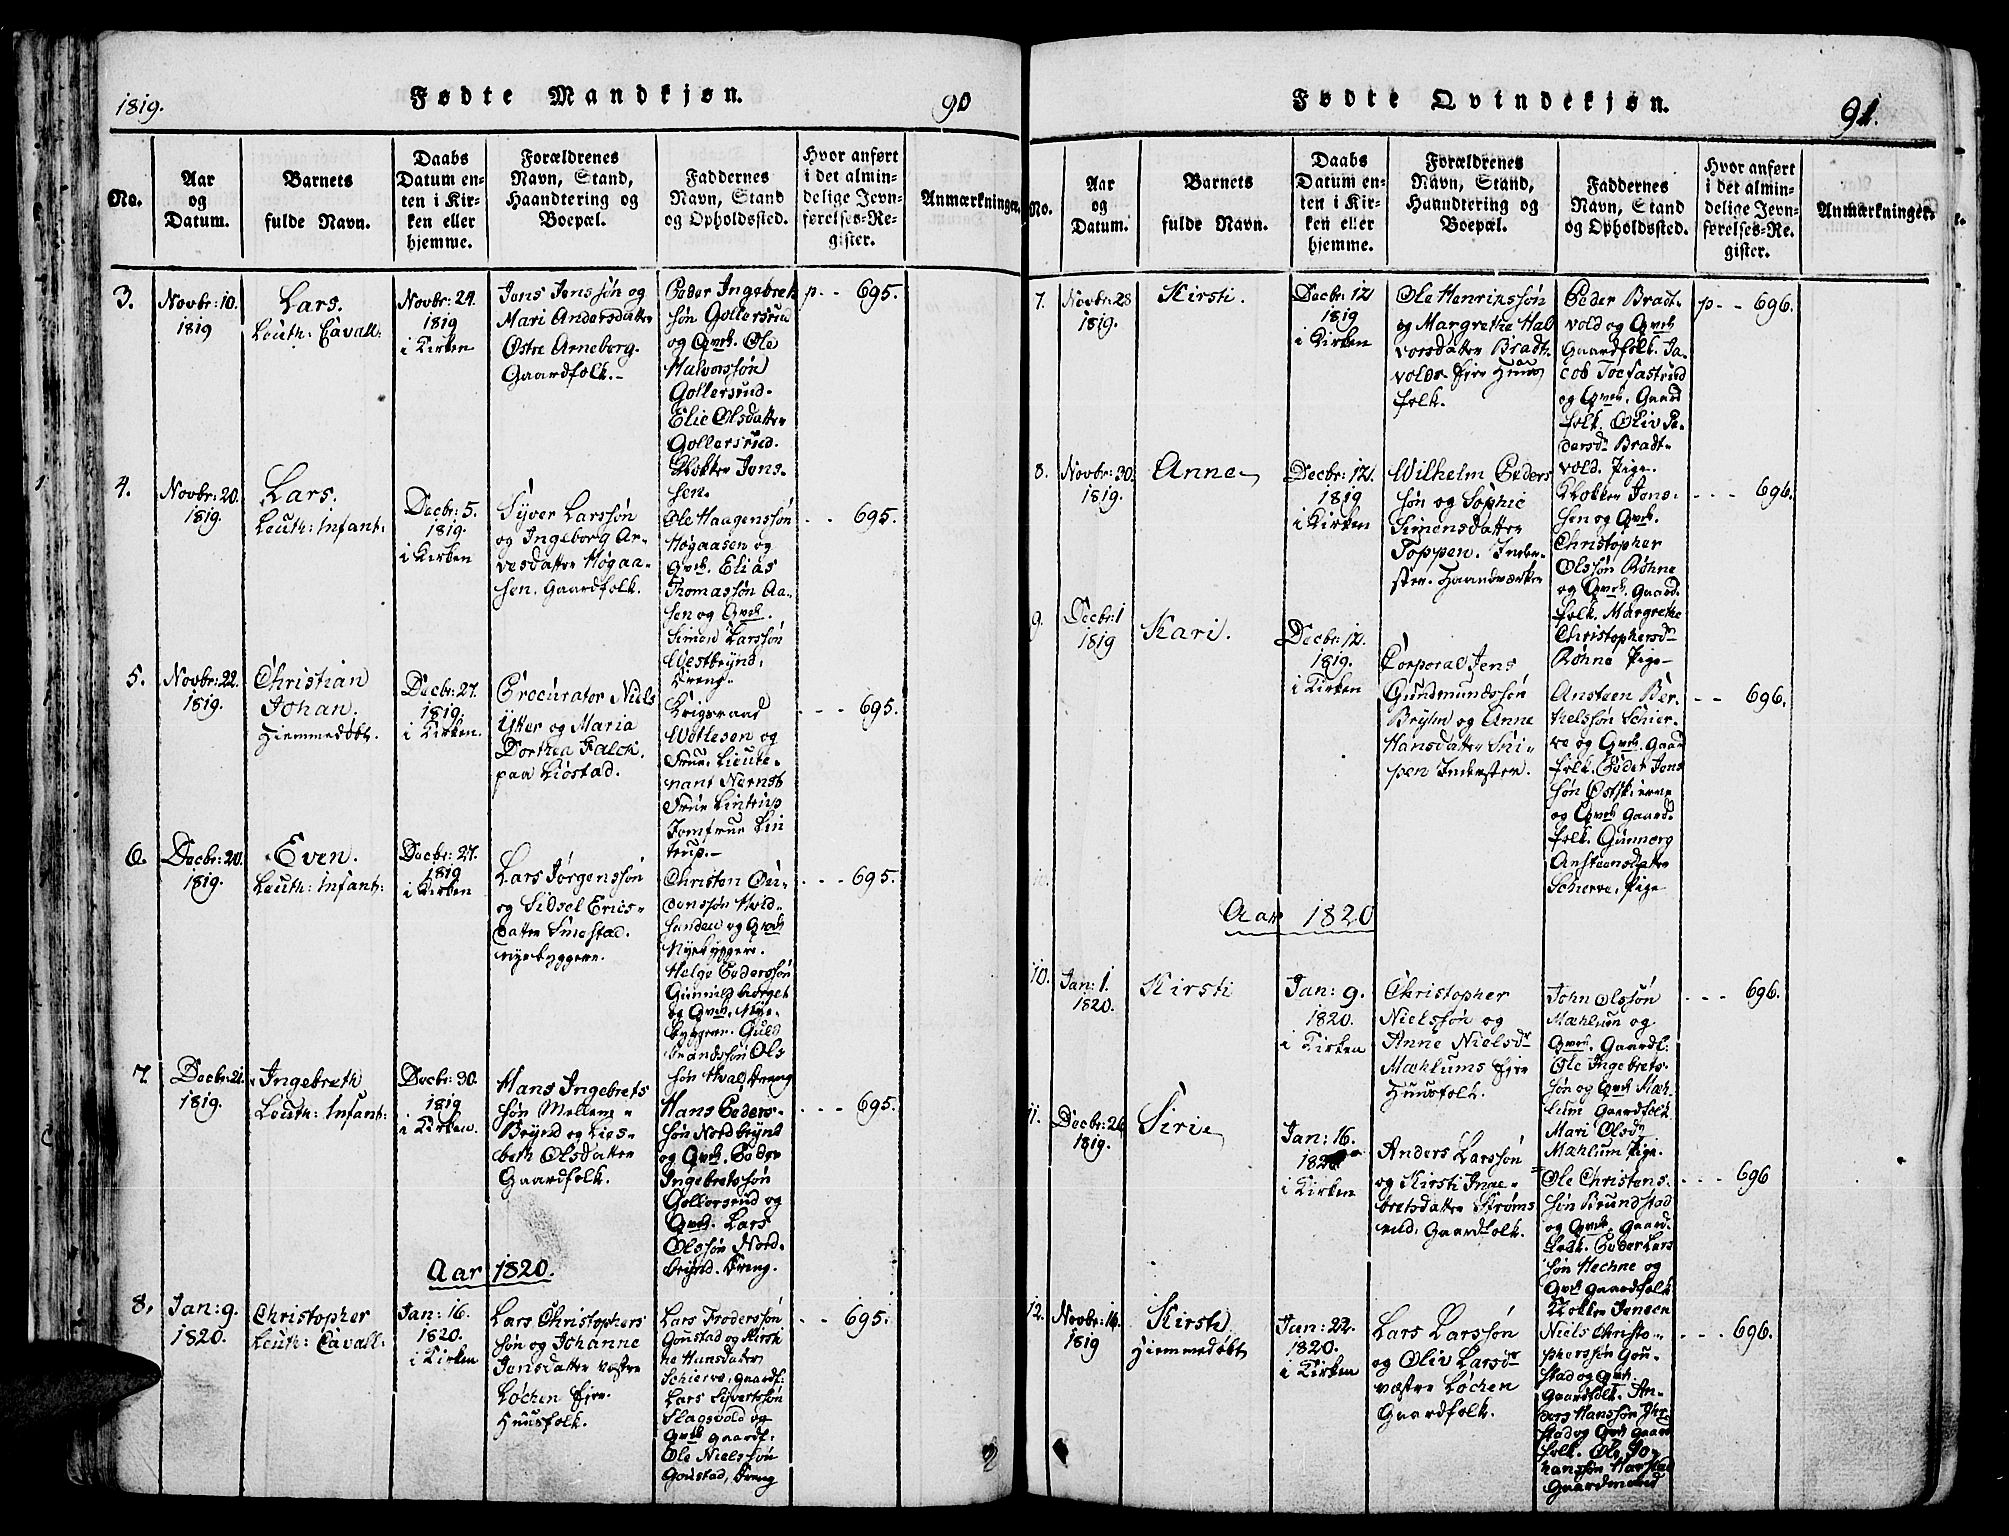 1819.
Fødte Mandkjøn.
90
No.
Aar
og
Datum.
Barnets
fulde Navn.
Daabs
Datum en-
ten i Kir-
ken eller
hjemme.
Forældrenes
Navn, Stand,
Haandtering og
Boepæl.
Faddernes
Navn, Stand
og Opholdssted.
Hvor anført
i det almin-
delige Jevn-
førelses-Re-
gister.
Anmærkninger.
3.
Novbr: 10.
1819
Lars.
Leuth: Cavall:
Novbr: 24.
1819
i Kirken
Jens Jenssøn og
Mari Andersdatter
Østre Arneberg.
Gaardfolk.-
Peder Ingebret
søn Gollersrud
og Qvek. Ole
Halvorssøn
Gollersrud.
Elie Olsdatter
Gollersrud.
Klokker Jens-
sen.
p. - 695.
4.
Novbr: 20.
1819.
Lars.
Leuth: Infant:
Decbr: 5.
1819.
i Kirken
Syver Larssøn
og Ingeborg Ar-
vesdatter Høgaa-
sen. Gaardfolk.
Ole Haagenssøn
Høgaasen og
Qvek. Elias
Thomassøn Aa-
sen og Qvek.
Simen Larssøn
Westbrynd,
Dreng.
- - 695.
5.
Novbr: 22.
1819.
Christian
Johan.
Hiemmedøbt.
Decbr: 27.
1819.
i Kirken.
Procurator Niels
Ytter og Maria
Dorthea Falck
paa Liøstad.
Krigsraad
Wotlesen og
Frue. Lieute-
nant Nærnst
Frue Lintrup
Jomfrue Lin
trup.-
- - - 695.
6.
Decbr: 20.
1819.
Even.
Leuth: Infant:
Decbr: 27.
1819
i Kirken
Lars Jørgenssøn
og Sidsel Erics-
datter Smestad.
Nyebyggere.
Christen Gui-
donssøn Hvid-
sanden og Qvek
Nyebyggere.
Helge Pederssøn
Gunnildborget
og Qvek. Nye-
byggere. Guld
brandssøn Ols
søn Hval Dreng
- - - 695.
7.
Decbr: 21.
1819.
Ingebreth
Leuth: Infant:
Decbr: 30.
1819
i Kirken.
Hans Ingebrets
søn Mellem-
Brynd og Lies-
beth Olsdatter
Gaardfolk.
Hans Peders-
søn Nordbrynt
og Qvek. Peder
Ingebretssøn
Gollersrud og
Qvek. Lars
Olssøn Nord-
brynd. Dreng.
- - - 695.
Aar 1820.
8.
Jan: 9.
1820.
Christopher
Leuth: Cavall:
Jan: 16.
1820.
i Kirken
Lars Christophers
søn og Johanne
Jensdatter vestre
Løchen Eje-
Huusfolk.
Lars Frederssøn
Gonstad og Kirsti
ne Hansdatter
Schierve, Gaardf:
Lars Syvertssøn
Slagsvold og
Qvek Gaardf:
Ole Nielssøn
Gonstad, Dreng
- - 695.
Fødte Qvindekjøn.
91.
No.
Aar
og
Datum.
Barnets
fulde Navn.
Daabs
Datum en-
ten i Kir-
ken eller
hjemme.
Forældrenes
Navn, Stand,
Haandtering og
Boepæl.
Faddernes
Navn, Stand
og Opholdssted.
Hvor anført
i det almin-
delige Jevn-
førelses-Re-
gister.
Anmærkninger.
7.
Novbr: 28
1819.
Kirsti.
Decbr: 12
1819
i Kirken
Ole Henrikssøn
og Margrethe Hal
vorsdatter Bradt-
volds Eje Huus
folk.
Peder Bradt-
vold og Qvek
Gaardfolk. Ja-
cob Tocfastrud
og Qvek. Gaard
folk. Oliv Pe-
dersdr Bradt-
vold. Pige.
p - - 696.
8.
Novbr: 30.
1819.
Anne
Decbr: 12.
1819
i Kirken
Wilhelm Peders
søn og Sophie
Simensdatter
Toppen. Inder-
ster. Haandværker
Klokker Jens-
sen og Qvek.
Christopher
Olssøn Røhne
og Qvek. Gaard-
folk. Margrethe
Christophersdr
Røhne Pige-
- - - 696.
9.
Decbr: 1
1819
Kari.
Decbr: 12.
1819.
i Kirken
Corporal Jens
Gundmundssøn
Bryhn og Anne
Hansdatter Sni-
pen Inderster.
Ansteen Ber-
thelssøn Schier-
ve og Qvek. Gaard
folk. Peder Jens
søn Østskierve
og Qvek Gaard-
folk. Gunnerg
Ansteensdatter
Schierve, Pige
- - 696.
Aar 1820
10.
Jan: 1.
1820.
Kirsti
Jan: 9.
1820.
i Kirken
Christopher
Nielssøn og
Anne Nielsdr
Mæhlums Eje
Huusfolk.
John Olssøn
Mæhlum og
Qvek. Gaardf:
Ole Ingebrets-
søn og Qvek Mæh-
lum Gaardfolk
Mari Olsdr
Mæhlum Pige.
- - - 696.
11.
Decbr: 26
1819.
Sirie
Jan: 16.
1820
i Kirken
Anders Larssøn
og Kirsti Inge-
bretsdatter Strøms
rud, Gaardfolk.
Ole Christens-
søn Brundstad
og Qvek. Gaard-
folk. Peder Lars
søn Hechne og
Qvek Gaardfolk
Klokker Jensen
- - - 696
12.
Novbr: 16.
1819
Kirsti
Hiemmedøbt
Jan: 22.
1820.
i Kirken
Lars Larssøn
og Oliv Larsdr
vestre Løchen
Gaardfolk.
Niels Christo-
pherssøn Gon-
stad og Qvek.
Gaardfolk. An-
ders Hanssøn
stad og Qvek Gaard
folk. Ole Jo-
hanssøn Harstad
Gaardmænd
- - - 696.